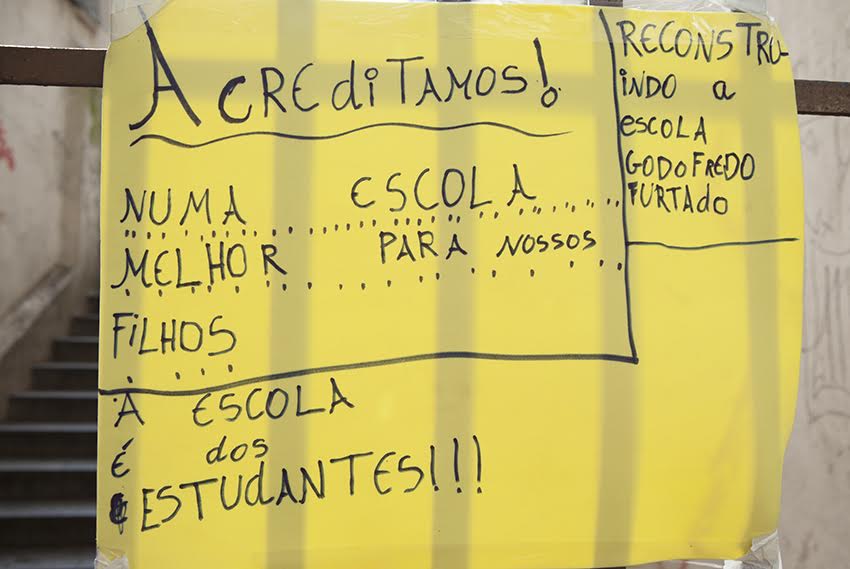 ACREDITAMOS!
NUMA ESCOLA
MELHOR PARA NOSSOS
FILHOS
RECONSTRU-
INDO a
ESCOLA
GODOFREDO
FURTADO
A ESCOLA
É dos
ESTUDANTES!!!